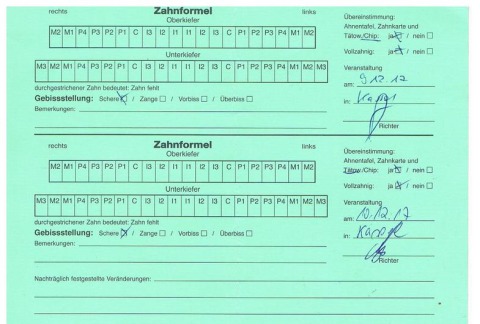 rechts Zahnformel links
Oberkiefer
M2 M1 P4 P3 P2 P1 C I3 I2 I1 I1 I2 I3 C P1 P2 P3 P4 M1 M2
Unterkiefer
M3 M2 M1 P4 P3 P2 P1 C I3 I2 I1 I1 I2 I3 C P1 P2 P3 P4 M1 M2 M3
durchgestrichener Zahn bedeutet: Zahn fehlt
Gebissstellung: Schere / Zange / Vorbiss / Überbiss
Bemerkungen:
Übereinstimmung:
Ahnentafel, Zahnkarte und
Tätow./Chip: ja / nein
Vollzahnig: ja / nein
Veranstaltung
am: 9.12.17
in: Kassel
Richter
rechts Zahnformel links
Oberkiefer
M2 M1 P4 P3 P2 P1 C I3 I2 I1 I1 I2 I3 C P1 P2 P3 P4 M1 M2
Unterkiefer
M3 M2 M1 P4 P3 P2 P1 C I3 I2 I1 I1 I2 I3 C P1 P2 P3 P4 M1 M2 M3
durchgestrichener Zahn bedeutet: Zahn fehlt
Gebissstellung: Schere / Zange / Vorbiss / Überbiss
Bemerkungen:
Übereinstimmung:
Ahnentafel, Zahnkarte und
Tätow./Chip: ja / nein
Vollzahnig: ja / nein
Veranstaltung
am: 10.12.17
in: Kassel
Richter
Nachträglich festgestellte Veränderungen: